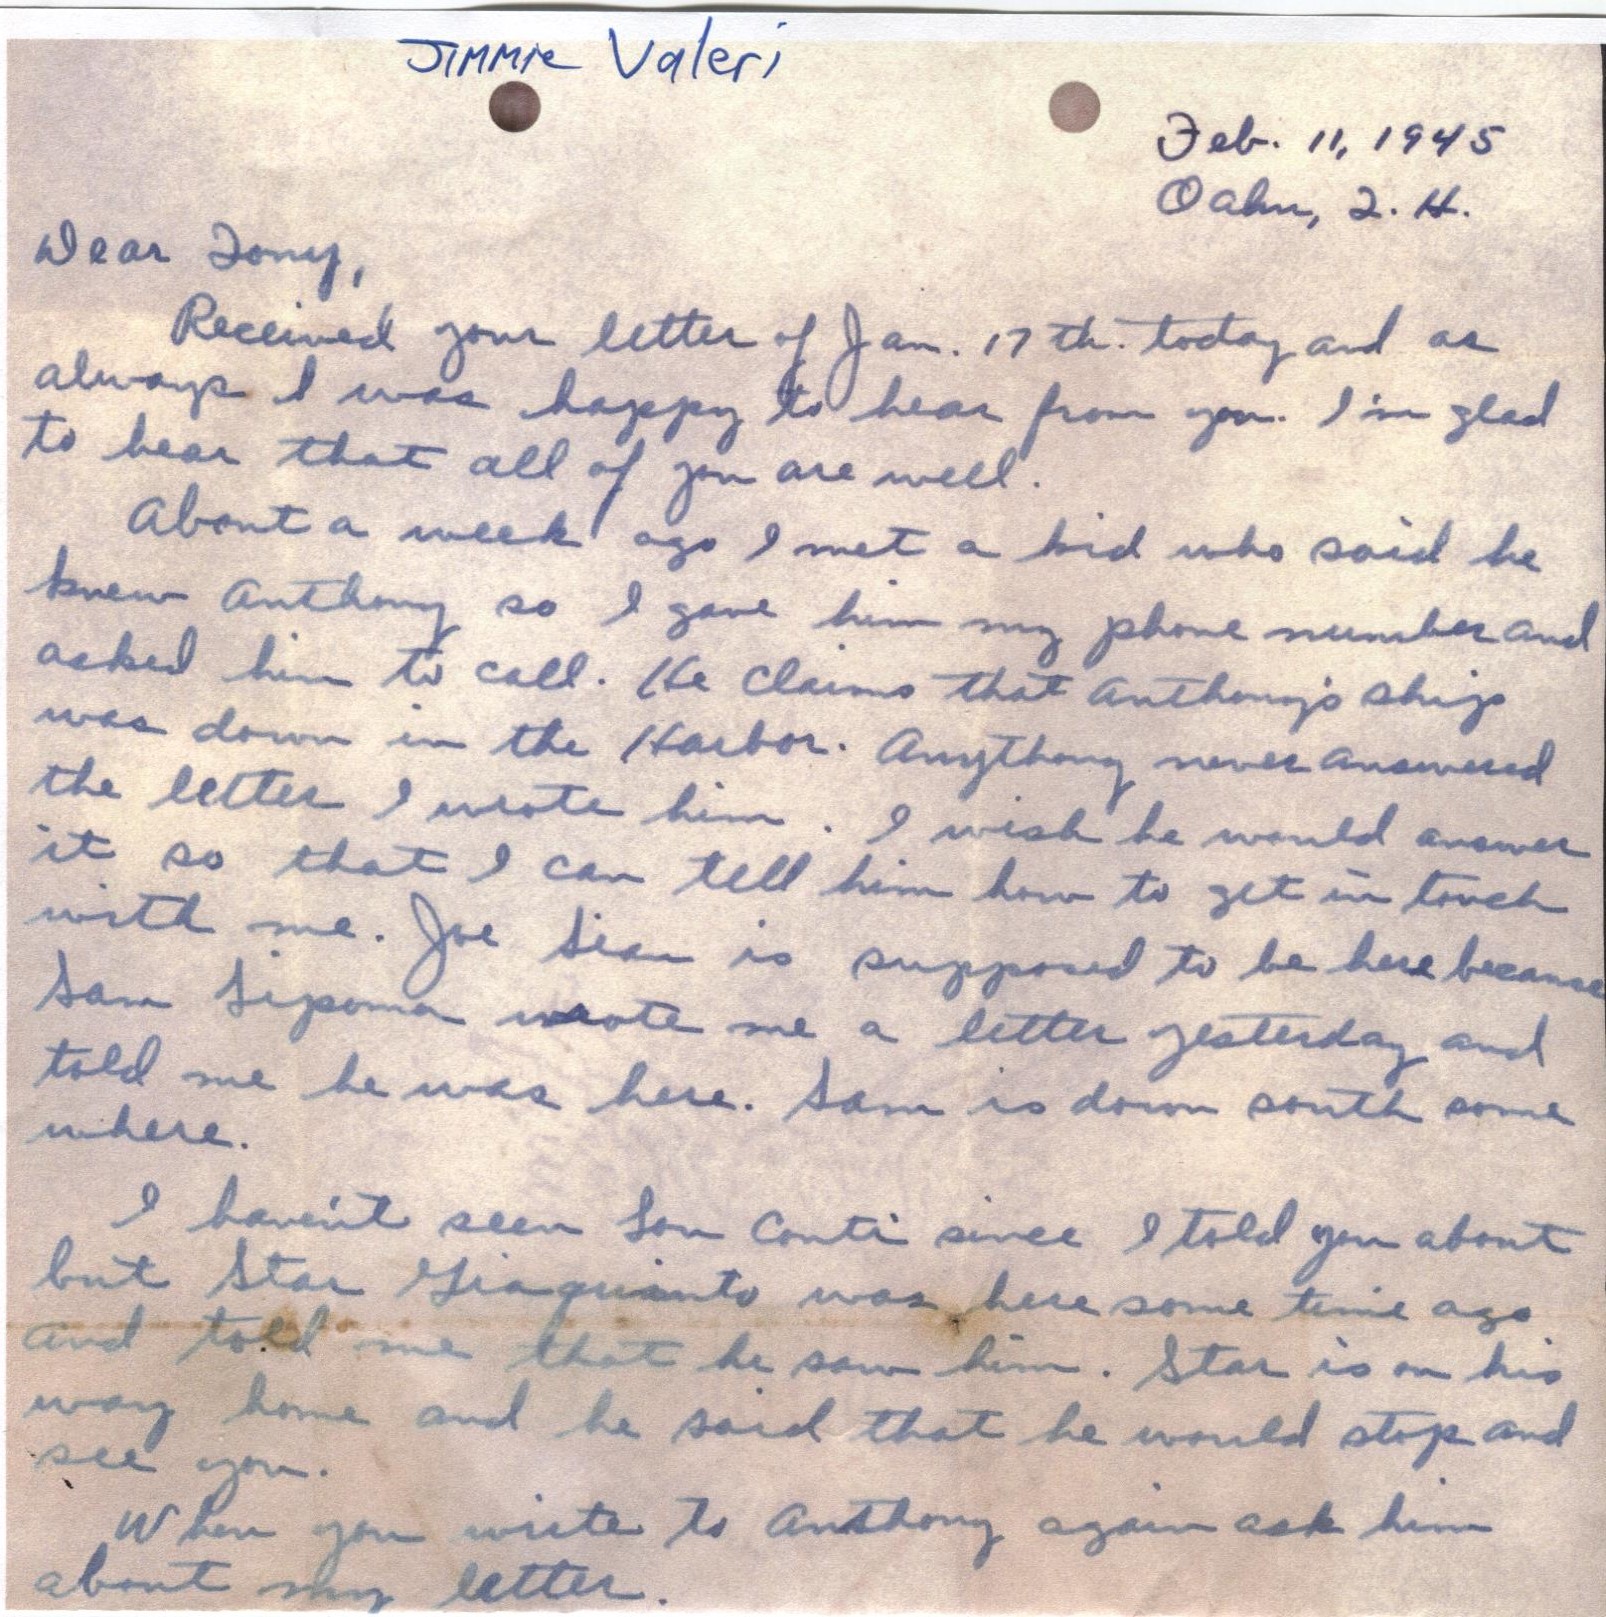 JIMMIE Valeri
Feb. 11, 1945
Oahu, T. H.
Dear Tony,
Received your letter of Jan. 17th. today and as
always I was happy to hear from you. I'm glad
to hear that all of you are well.
About a week ago I met a kid who said he
knew Anthony so I gave him my phone number and
asked him to call. He claims that Anthony's ship
was down in the Harbor. Anythony never answered
the letter I wrote him. I wish he would answer
it so that I can tell him how to get in touch
with me. Joe is supposed to be here because
Sam wrote me a letter yesterday and
told me he was here. Sam is down south some
where.
I haven't seen Lou Conti since I told you about
but Star Giaquinto was here some time ago
and told me that he saw him. Star is on his
way home and he said that he would stop and
see you.
When you write to Anthony again ask him
about my letter.